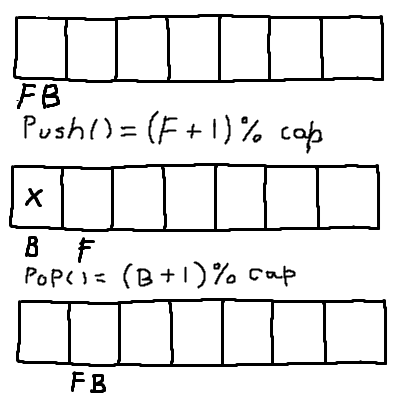 FB
Push()=(F+1)% cap
X
B F
POP()= (B+1)% cap
FB